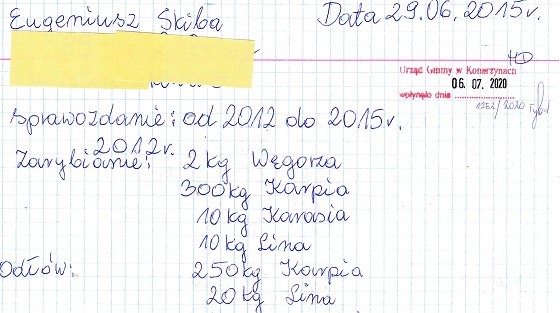 Eugeniusz Skiba Data 29.06.2015r.
Urząd Gminy w Konarzynach
06. 07. 2020
wpłynęło dnia
1262/2020
Sprawozdanie: od 2012 do 2015r.
2012r.
Zarybianie: 2 kg Węgorza
300 kg Karpia
10 kg Karasia
10 kg Lina
Odłów: 250 kg Karpia
20 kg Lina